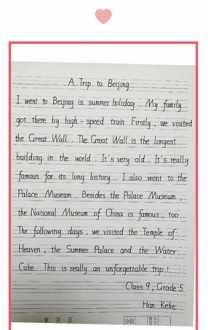 A Trip to Beijing
I went to Beijing in summer holiday. My family
got there by high-speed train. Firstly, we visited
the Great Wall. The Great Wall is the longest
building in the world. It's very old. It's really
famous for its long history. I also went to the
Palace Museum. Besides the Palace Museum,
the National Museum of China is famous, too.
The following days, we visited the Temple of
Heaven, the Summer Palace and the Water
Cube. This is really an unforgettable trip!
Class 9, Grade 5
Han Keke